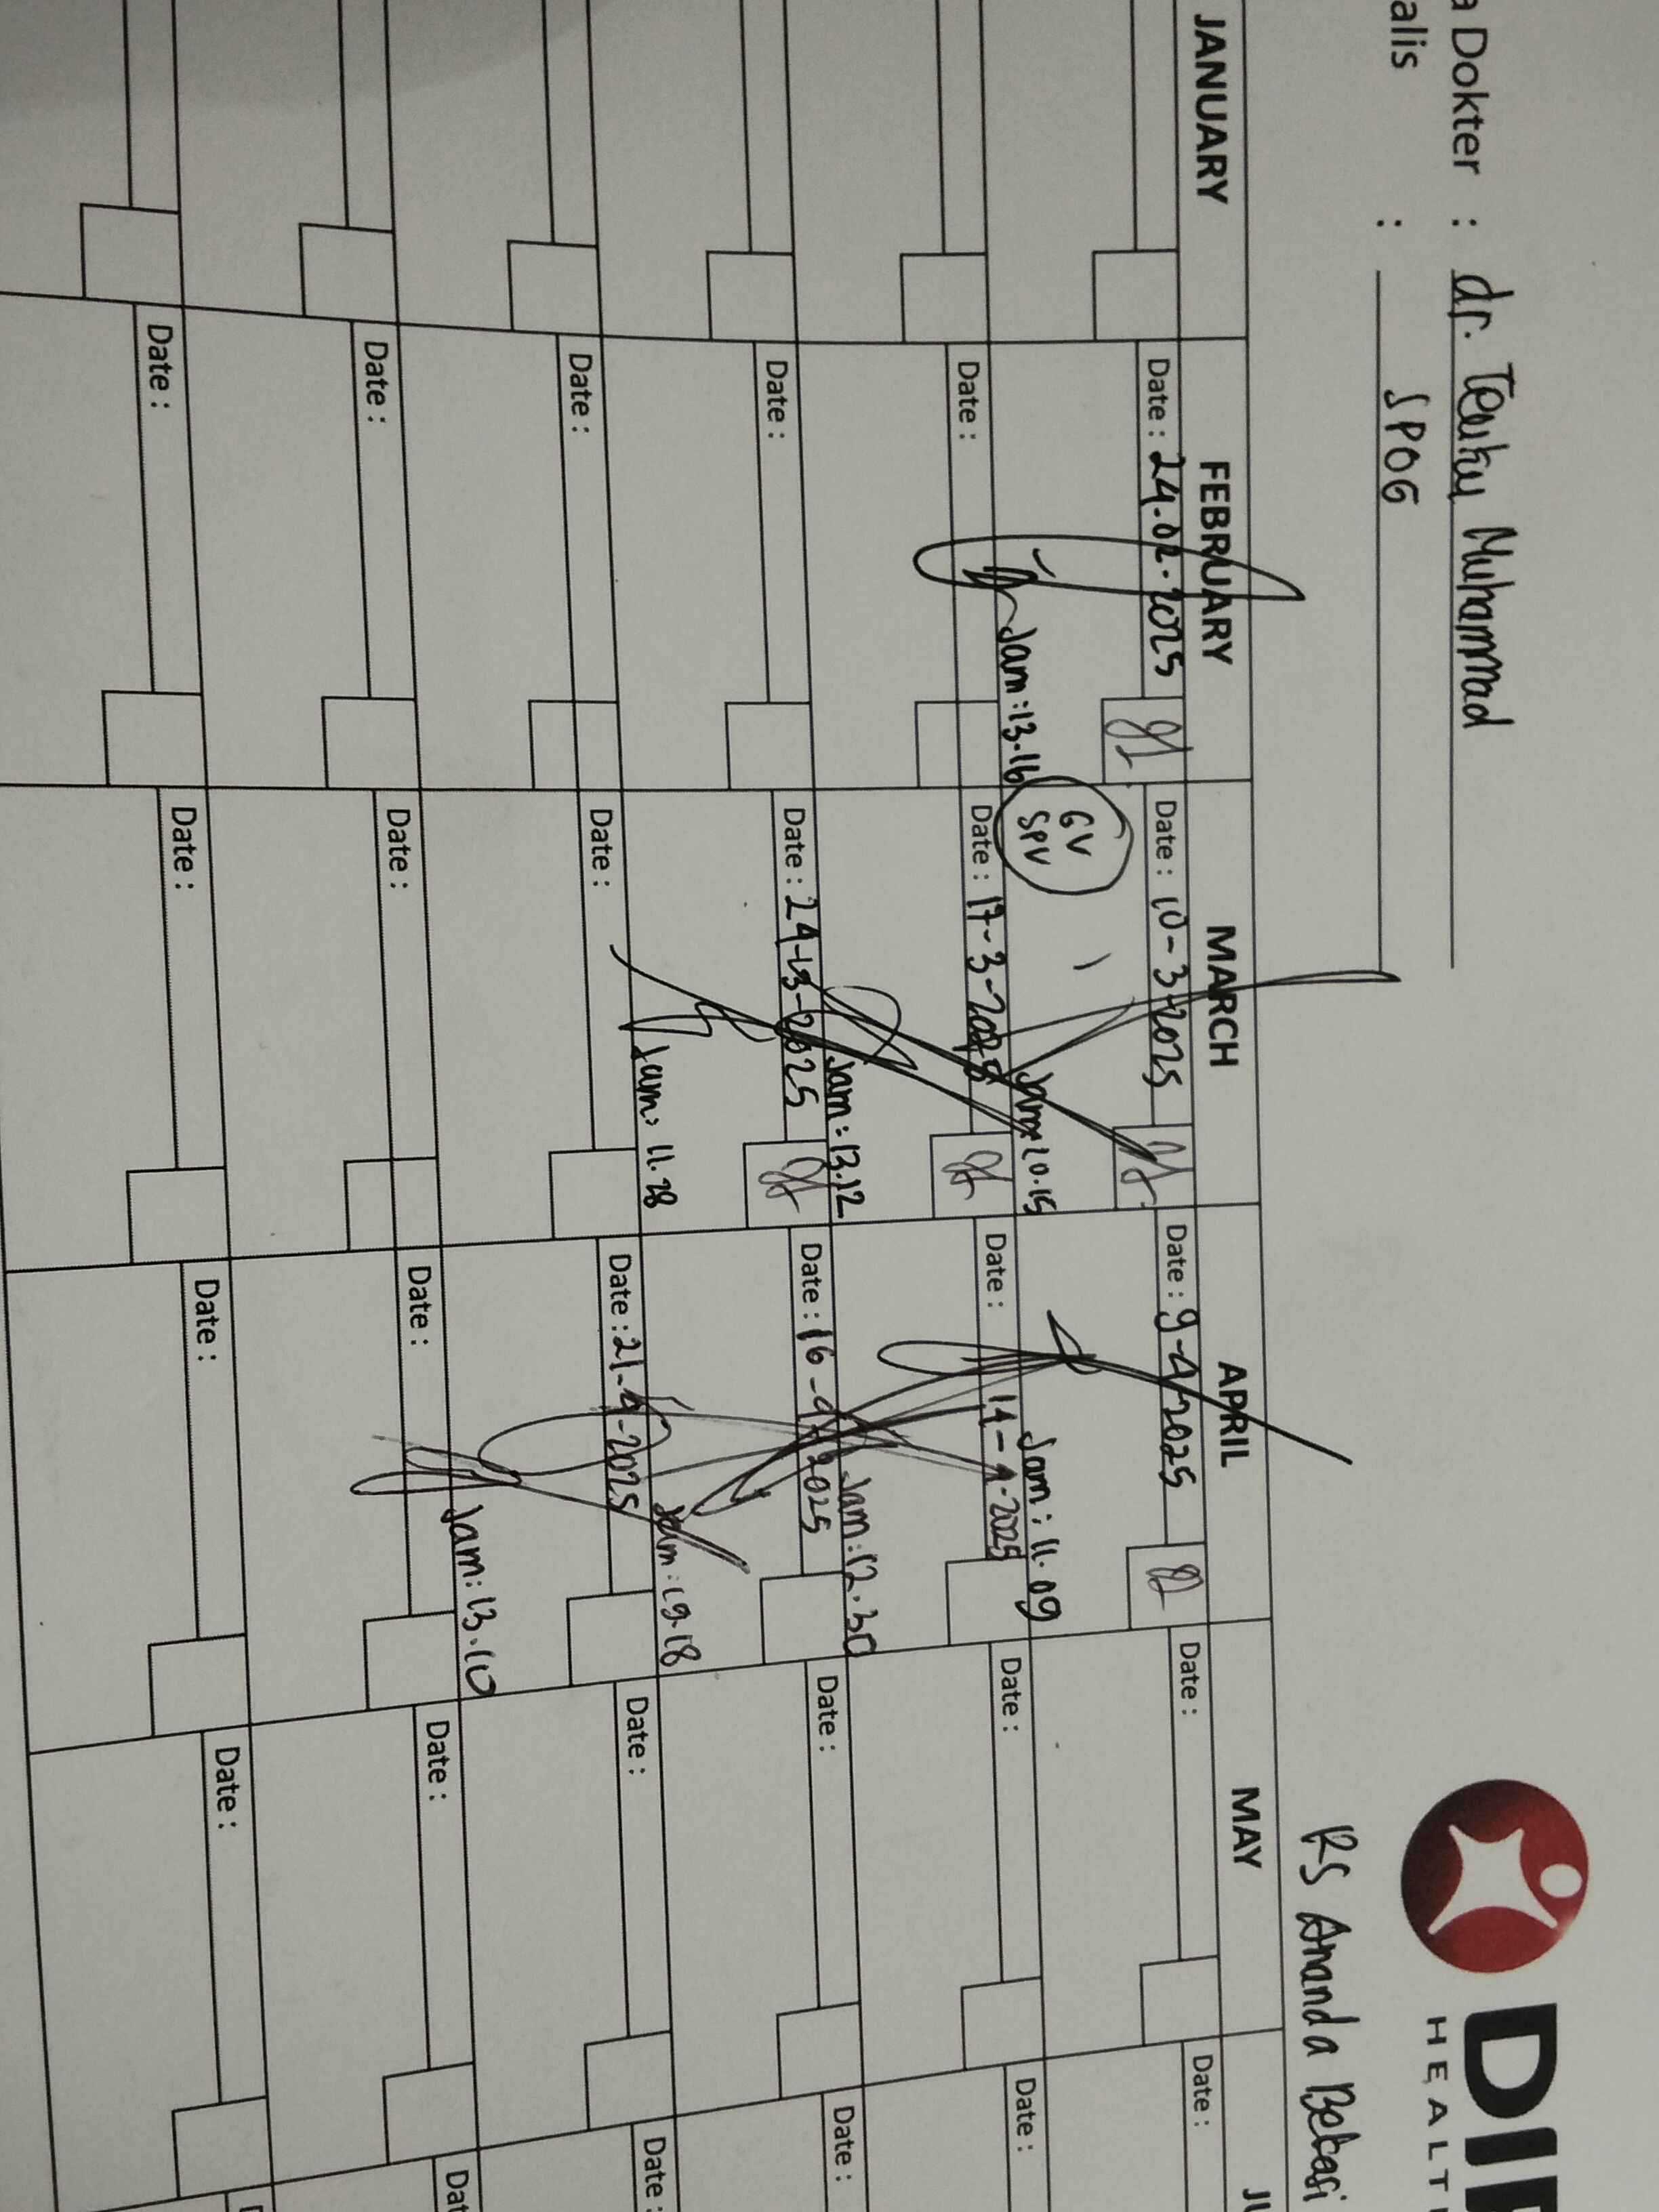 a Dokter : dr. Teuku Muhammad
alis : SPOG
DI
HEALT
RS Ananda Bekasi
JANUARY FEBRUARY MARCH APRIL MAY JU
Date : 24.02.2025 Date : 10-3-2025 Date : 9-4-2025 Date : Date :
GV
SPV
Jam : 13.16 Jam : 10.15 Jam : 11.09
Date : Date : 17-3-2025 Date : 14-4-2025 Date : Date :
Jam : 13.12 Jam : 12.30
Date : Date : 24-3-2025 Date : 16-4-2025 Date : Date :
Jam : 11.28 Jam : 19.18
Date : Date : Date : 21-4-2025 Date : Date :
Jam : 13.10
Date : Date : Date : Date : Dat
Date : Date : Date : Date : D